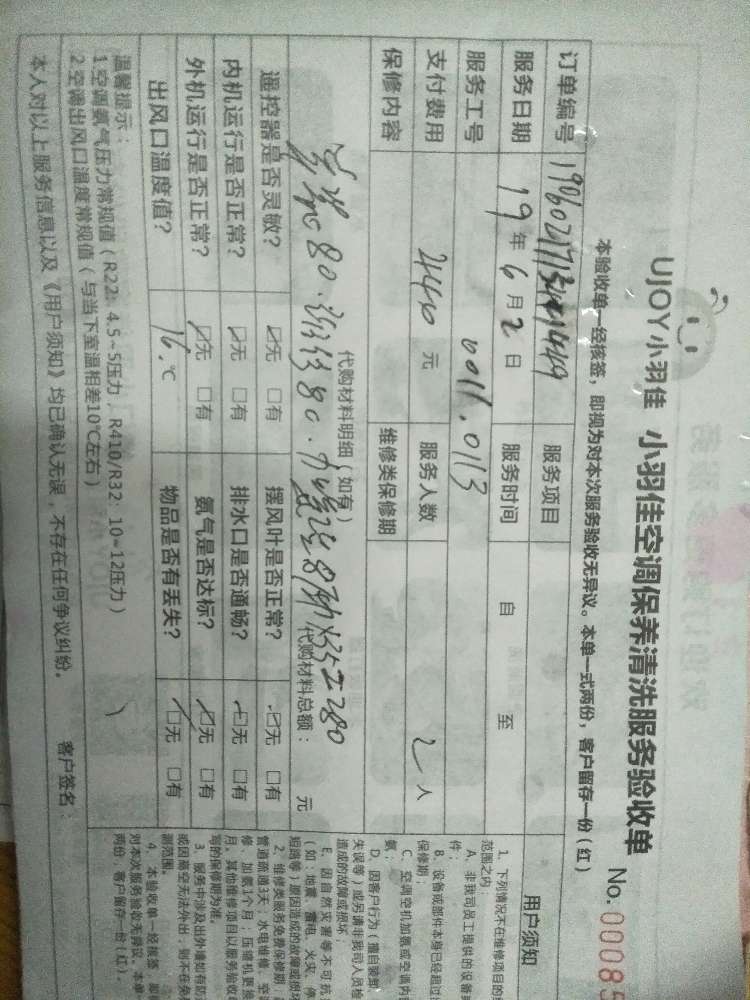 UJOY小羽佳 小羽佳空调保养清洗服务验收单
No.00085
本验收单一经核签，即视为对本次服务验收无异议。本单一式两份，客户留存一份（红）
订单编号
服务项目
服务日期 19年6月2日 服务时间 自 至
服务工号 0011.0113
支付费用 440元 服务人数 2人
保修内容 维修类保修期
代购材料明细（如有）
代购材料总额： 元
遥控器是否灵敏？ ☑无 □有 摆风叶是否正常？ ☑无 □有
内机运行是否正常？ ☑无 □有 排水口是否通畅？ ☑无 □有
外机运行是否正常？ ☑无 □有 氨气是否达标？ ☑无 □有
出风口温度值？ 16.℃ 物品是否有丢失？ ☑无 □有
温馨提示：
1 空调氨气压力常规值（R22：4.5~5压力，R410/R32：10~12压力）
2 空调出风口温度常规值（与当下室温相差10℃左右）
本人对以上服务信息以及《用户须知》均已确认无误，不存在任何争议纠纷。 客户签名：
用户须知
1、下列情况不在维修项目的
范围之内：
A、非我司员工提供的设备或
件；
B、设备或部件本身已经超过
保修期；
C、空调空机加氨或空调内
氨；
D、因客户行为（擅自装卸
失误等）或另请非我司人员检
造成的故障或损坏；
E、因自然灾害等不可抗
（如：地震、雷电、火灾、停
短路等）原因造成的故障或损坏
2、维修类服务免费保修期：
管道疏通3天；水电维修、空
修、加氨1个月；压缩机更换
月。其他维修项目以服务验收
写的保修期为准。
3、服务中涉及出外墙如有防
或因高空无法外出，则不在免
测范围。
4、本验收单一经核签，即
对本次服务验收无异议。本单
两份，客户留存一份（红）。